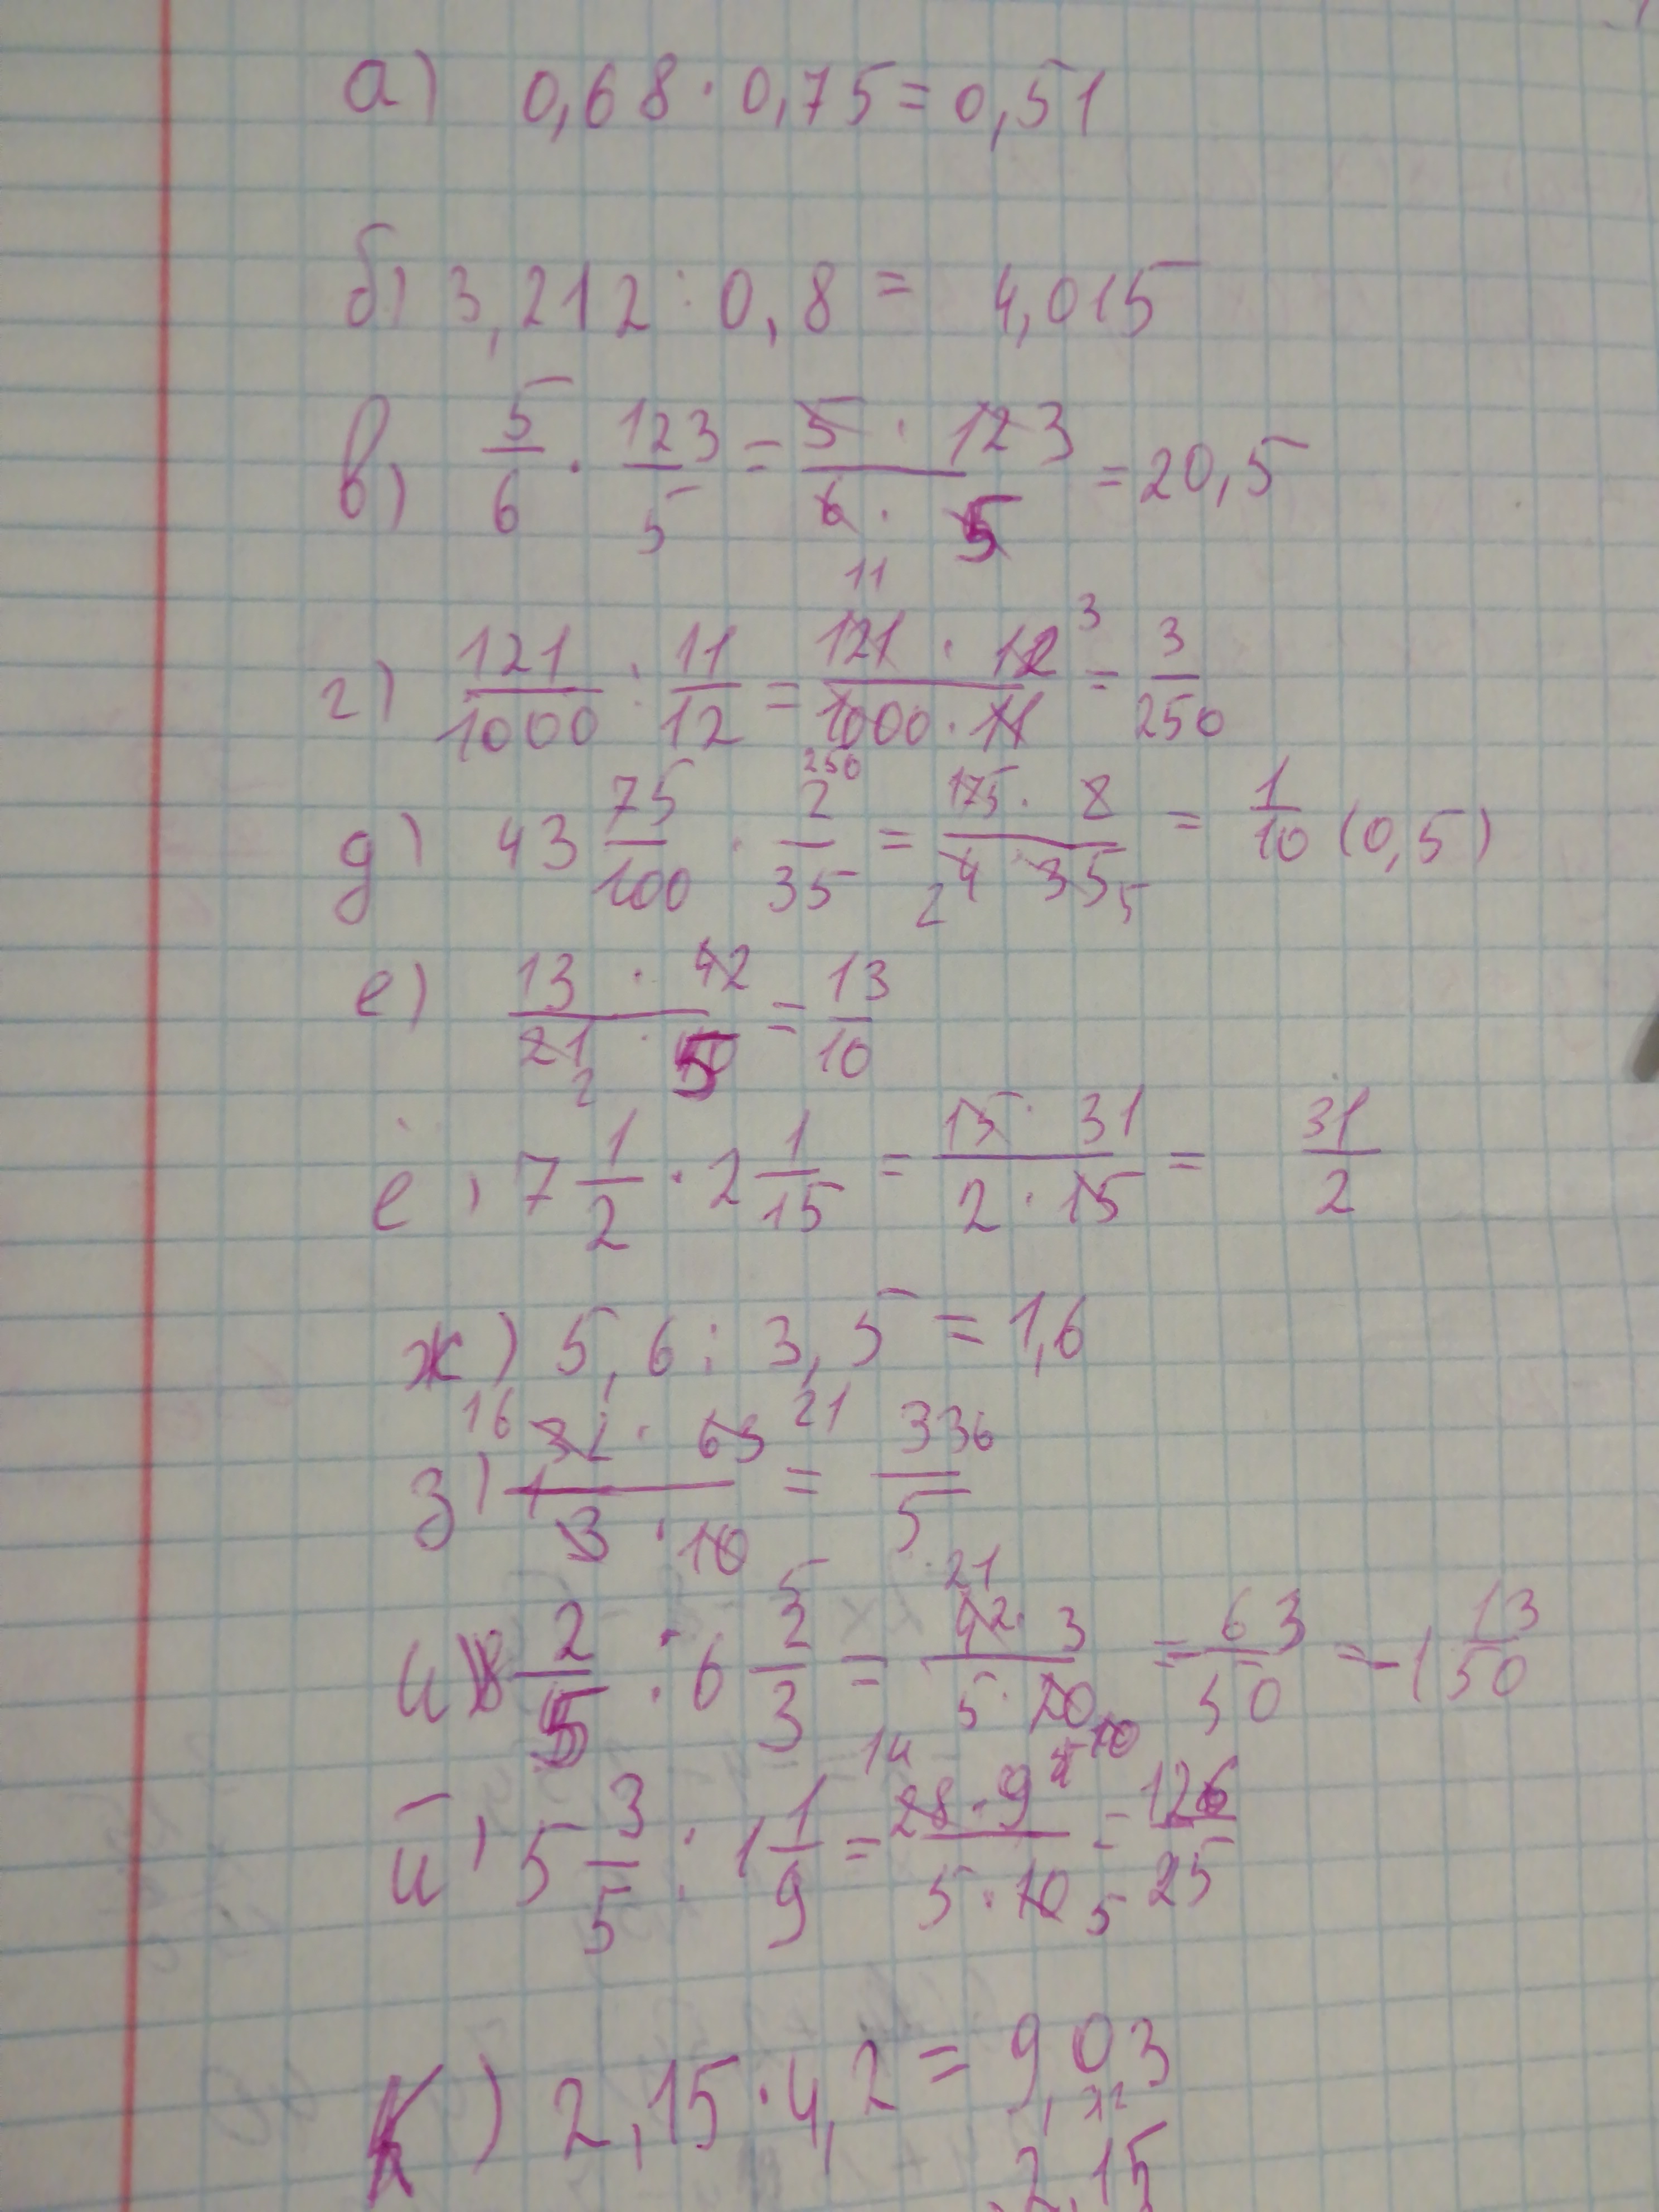 а) 0,68 · 0,75 = 0,51
б) 3,212 : 0,8 = 4,015
в) 5/6 · 123/5 = 5 · 123 / 6 · 5 = 20,5
г) 121/1000 : 11/12 = 121 11 · 12 3 / 1000 250 · 11 = 3/250
д) 43 75/100 · 2/35 = 175 · 2 / 2 4 · 35 5 = 1/10 (0,5)
е) 13 · 42 / 21 2 · 5 = 13/10
ё) 7 1/2 · 2 1/15 = 15 · 31 / 2 · 15 = 31/2
ж) 5,6 : 3,5 = 1,6
з) 16 32 · 63 21 / 3 · 10 = 336/5
и) 8 2/5 : 6 2/3 = 21 42 · 3 / 5 · 20 10 = 63/50 = -1 13/50
й) 5 3/5 : 1 1/9 = 14 28 · 9 / 5 · 10 5 = 126/25
К) 2,15 · 4,2 = 9,03
2,15